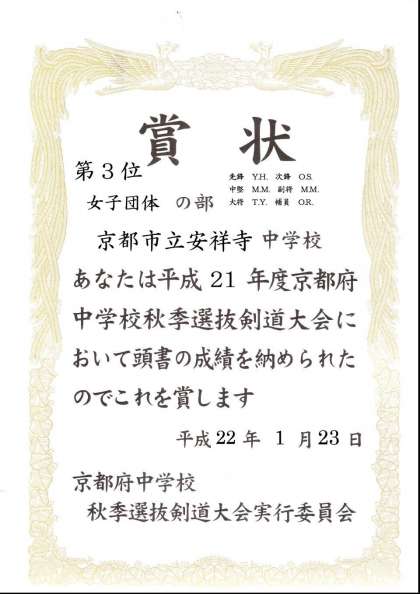 賞状
第3位
先鋒 Y.H. 次鋒 O.S.
中堅 M.M. 副将 M.M.
大将 T.Y. 補員 O.R.
女子団体 の部
京都市立安祥寺 中学校
あなたは平成 21 年度京都府
中学校秋季選抜剣道大会に
おいて頭書の成績を納められた
のでこれを賞します
平成 22 年 1 月 23 日
京都府中学校
秋季選抜剣道大会実行委員会